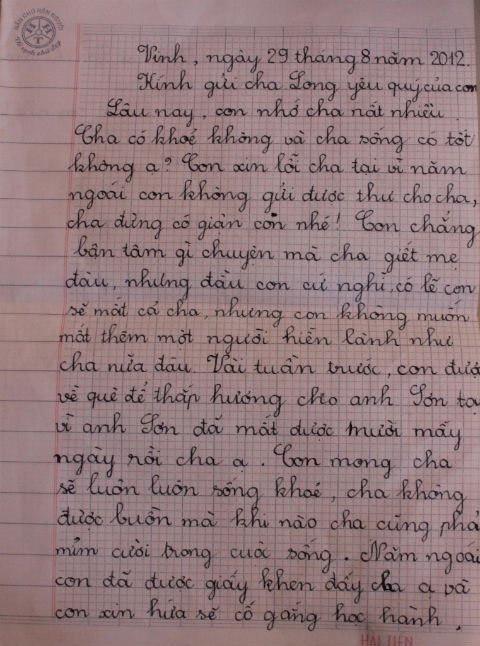 Vinh, ngày 29 tháng 8 năm 2012.
Kính gửi cha Long yêu quý của con
Lâu nay, con nhớ cha rất nhiều.
Cha có khoẻ không và cha sống có tốt
không ạ? Con xin lỗi cha tại vì năm
ngoái con không gửi được thư cho cha,
cha đừng có giận con nhé! Con chẳng
bận tâm gì chuyện mà cha giết mẹ
đâu, nhưng đầu con cứ nghĩ, có lẽ con
sẽ mất cả cha, nhưng con không muốn
mất thêm một người hiền lành như
cha nữa đâu. Vài tuần trước, con được
về quê để thắp hương cho anh Sơn tại
vì anh Sơn đã mất được mười mấy
ngày rồi cha ạ. Con mong cha
sẽ luôn luôn sống khoẻ, cha không
được buồn mà khi nào cha cũng phả
mỉm cười trong cuộc sống. Năm ngoái
con đã được giấy khen đấy cha ạ và
con xin hứa sẽ cố gắng học hành,
HẢI TIẾN